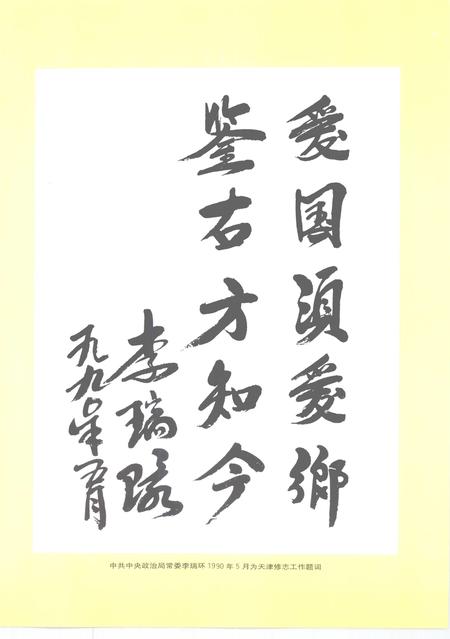 爱国須爱鄉
鉴古方知今
李瑞环
一九九〇年五月
中共中央政治局常委李瑞环1990年5月为天津修志工作题词